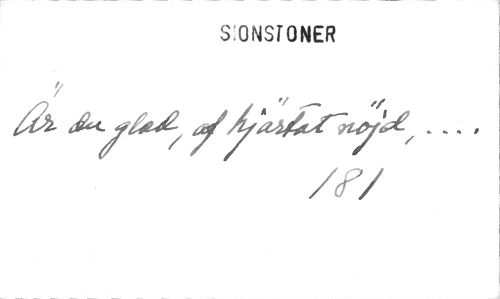 SIONSTONER
Är du glad, af hjärtat nöjd, ....
181